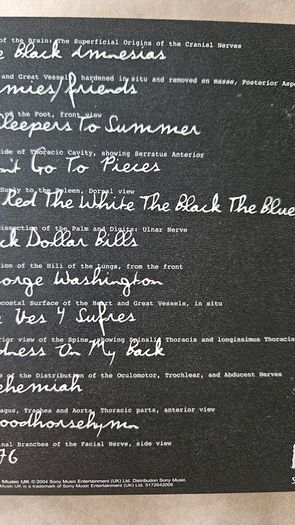 of the Brain: The Superficial Origins of the Cranial Nerves
e Black Amnesias
and Great Vessels, hardened in situ and removed en masse, Posterior Aspe
mies/friends
of the Foot, front view
Sleepers To Summer
ide of Thoracic Cavity, showing Serratus Anterior
n't Go To Pieces
Supply to the Spleen, Dorsal view
Red The White The Black The Blue
issection of the Palm and Digits: Ulnar Nerve
ck Dollar Bills
ion of the Hili of the Lungs, from the front
orge Washington
ocostal Surface of the Heart and Great Vessels, in situ
e Ves 4 Sufres
rior view of the Spine, showing Spinalis Thoracis and longissimus Thoracis
dness On My Back
s of the Distribution of the Oculomotor, Trochlear, and Abducent Nerves
ehemiah
agus, Trachea and Aorta, Thoracic parts, anterior view
oodhorsehymn
inal Branches of the Facial Nerve, side view
76
Music UK ℗ 2004 Sony Music Entertainment (UK) Ltd. Distribution Sony Music.
Music UK is a trademark of Sony Music Entertainment (UK) Ltd. 5172642006